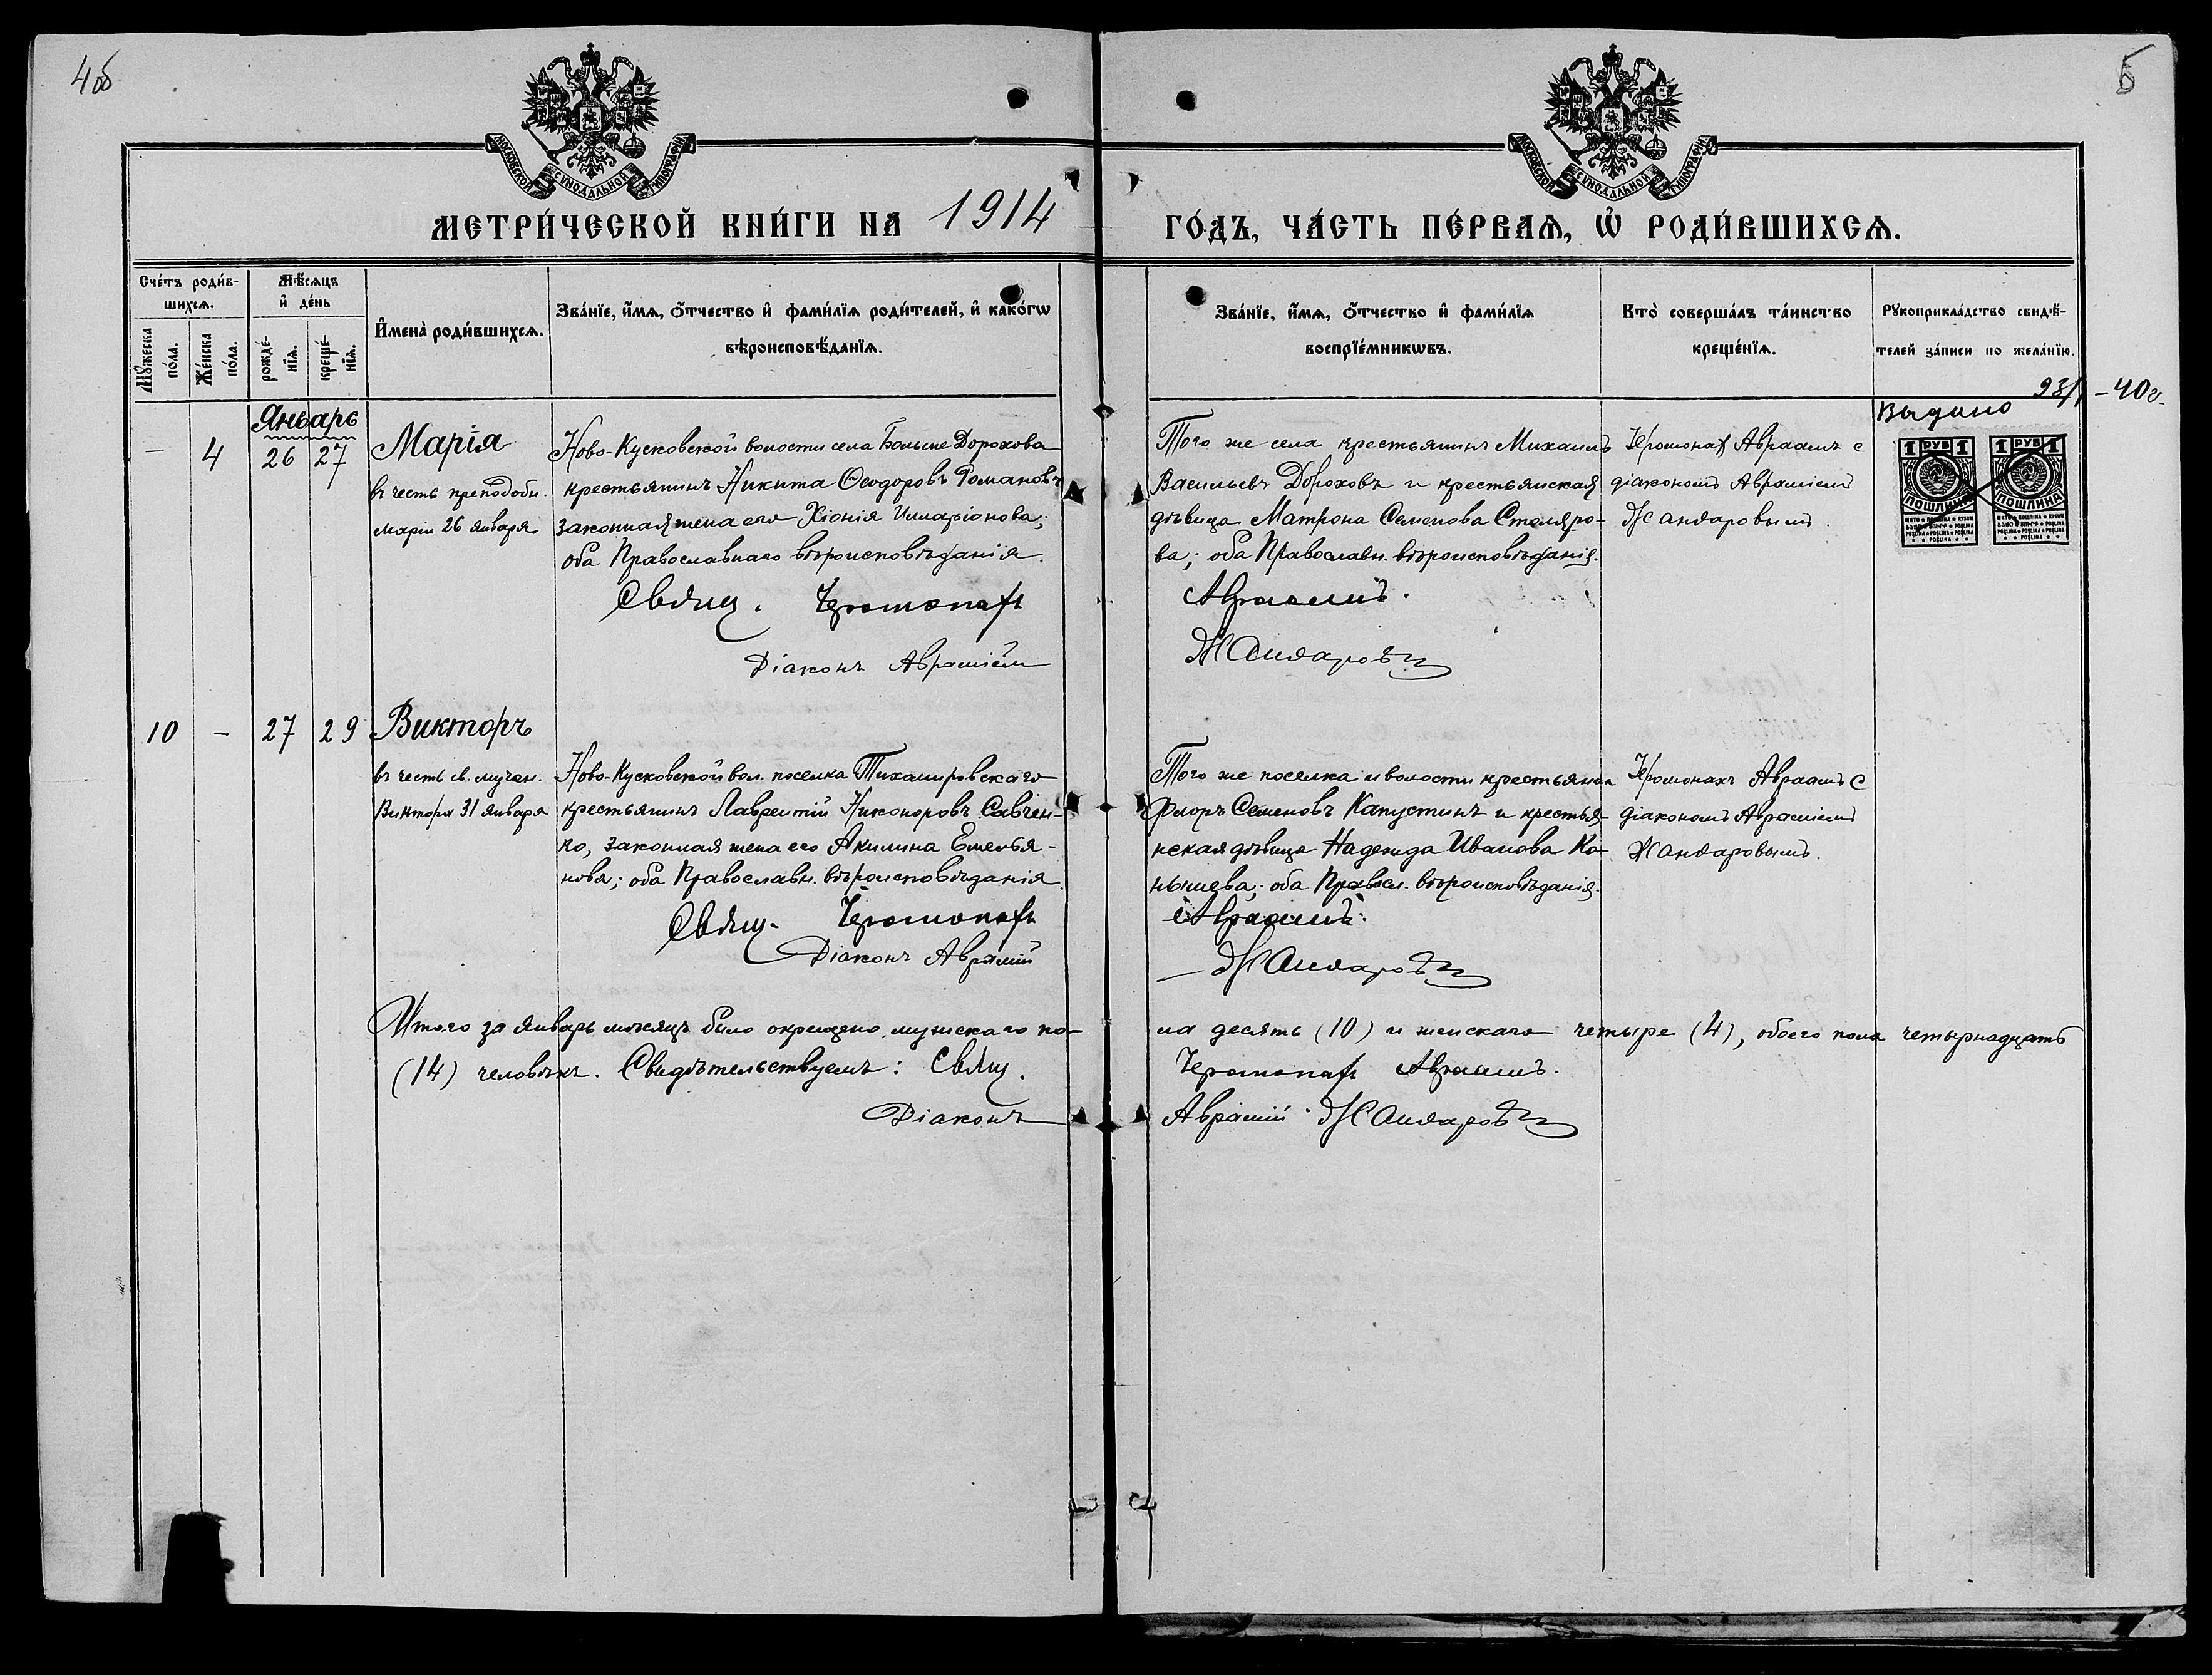 4об
5
МОСКОВСКОЙ СѴНОДАЛЬНОЙ ТИПОГРАФІИ
МОСКОВСКОЙ СѴНОДАЛЬНОЙ ТИПОГРАФІИ
МЕТРИ́ЧЕСКОЙ КНИ́ГИ НА 1914
ГО́ДЪ, ЧА́СТЬ ПЕ́РВАѦ, Ѡ҆ РОДИ́ВШИХСѦ.
Сче́тъ роди́в-
шихсѧ.
Мꙋ́жеска по́ла.
Же́нска по́ла.
Мѣ́сѧцъ
и҆ де́нь
рожде́-нїѧ.
креще́-нїѧ.
И҆мена̀ роди́вшихсѧ.
Зва́нїе, и҆́мѧ, ѻ҆́тчество и҆ фами́лїѧ роди́телей, и҆ како́гѡ
вѣроисповѣ́данїѧ.
Зва́нїе, и҆́мѧ, ѻ҆́тчество и҆ фами́лїѧ
воспрїе́мникѡвъ.
Кто̀ соверша́лъ та́инство
креще́нїѧ.
Рꙋкоприкла́дство свидѣ́-
телей за́писи по жела́нїю.
Январь
— 4 26 27
Марія
въ честь преподобн.
Маріи 26 января
Ново-Кусковской волости села Больше Дорохова
крестьянинъ Никита Ѳеодоровъ Романовъ
законная жена его Хіонія Илларіонова;
оба Православнаго вѣроисповѣданія.
Свящ. Іеромонахъ
Діаконъ Аврамій
Того же села крестьянинъ Михаилъ
Васильевъ Дороховъ и крестьянская
дѣвица Матрона Семенова Столяро-
ва; оба Православн. вѣроисповѣданія.
Авраамъ.
Жандаровъ
Іеромонахъ Авраамъ с
діакономъ Авраміемъ
Жандаровымъ.
Выдано 23/I – 40 г.
1 РУБ 1
ПОШЛИНА
1 РУБ 1
ПОШЛИНА
10 — 27 29
Викторъ
въ честь св. мучен.
Виктора 31 января
Ново-Кусковской вол. поселка Тихомировскаго
крестьянинъ Лаврентій Никоноровъ Савчен-
ко, законная жена его Акилина Емелья-
нова; оба Православн. вѣроисповѣданія.
Свящ. Іеромонахъ
Діаконъ Аврамій
Того же поселка и волости крестьянин
Флоръ Семеновъ Капустинъ и крестья-
нская дѣвица Надежда Иванова Ко-
нышева; оба Правосл. вѣроисповѣданія.
Авраамъ.
Жандаровъ
Іеромонахъ Авраамъ с
діакономъ Авраміемъ
Жандаровымъ.
Итого за январь мѣсяцъ было окрещено мужскаго по-
ла десять (10) и женскаго четыре (4), обоего пола четырнадцать
(14) человѣкъ. Свидѣтельствуемъ: Свящ.
Іеромонахъ Авраамъ.
Діаконъ
Аврамій Жандаровъ